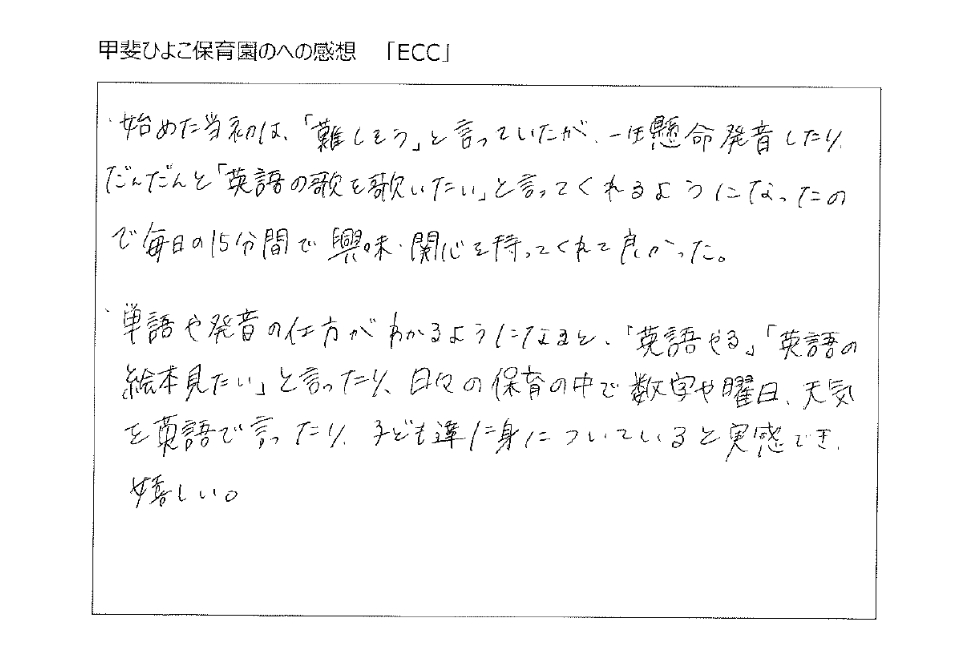 甲斐ひよこ保育園のへの感想 「ECC」
・始めた当初は、「難しそう」と言っていたが、一生懸命発音したり、
だんだんと「英語の歌を歌いたい」と言ってくれるようになったの
で毎日の15分間で興味・関心を持ってくれて良かった。
・単語や発音の仕方がわかるようになると、「英語やる」「英語の
絵本見たい」と言ったり、日々の保育の中で数字や曜日、天気
を英語で言ったり、子ども達に身についていると実感でき、
嬉しい。